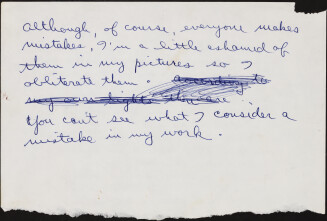 Although, of course, everyone makes
mistakes, I'm a little ashamed of
them in my pictures so I
obliterate them. according to
my own lights they are
You can't see what I consider a
mistake in my work.